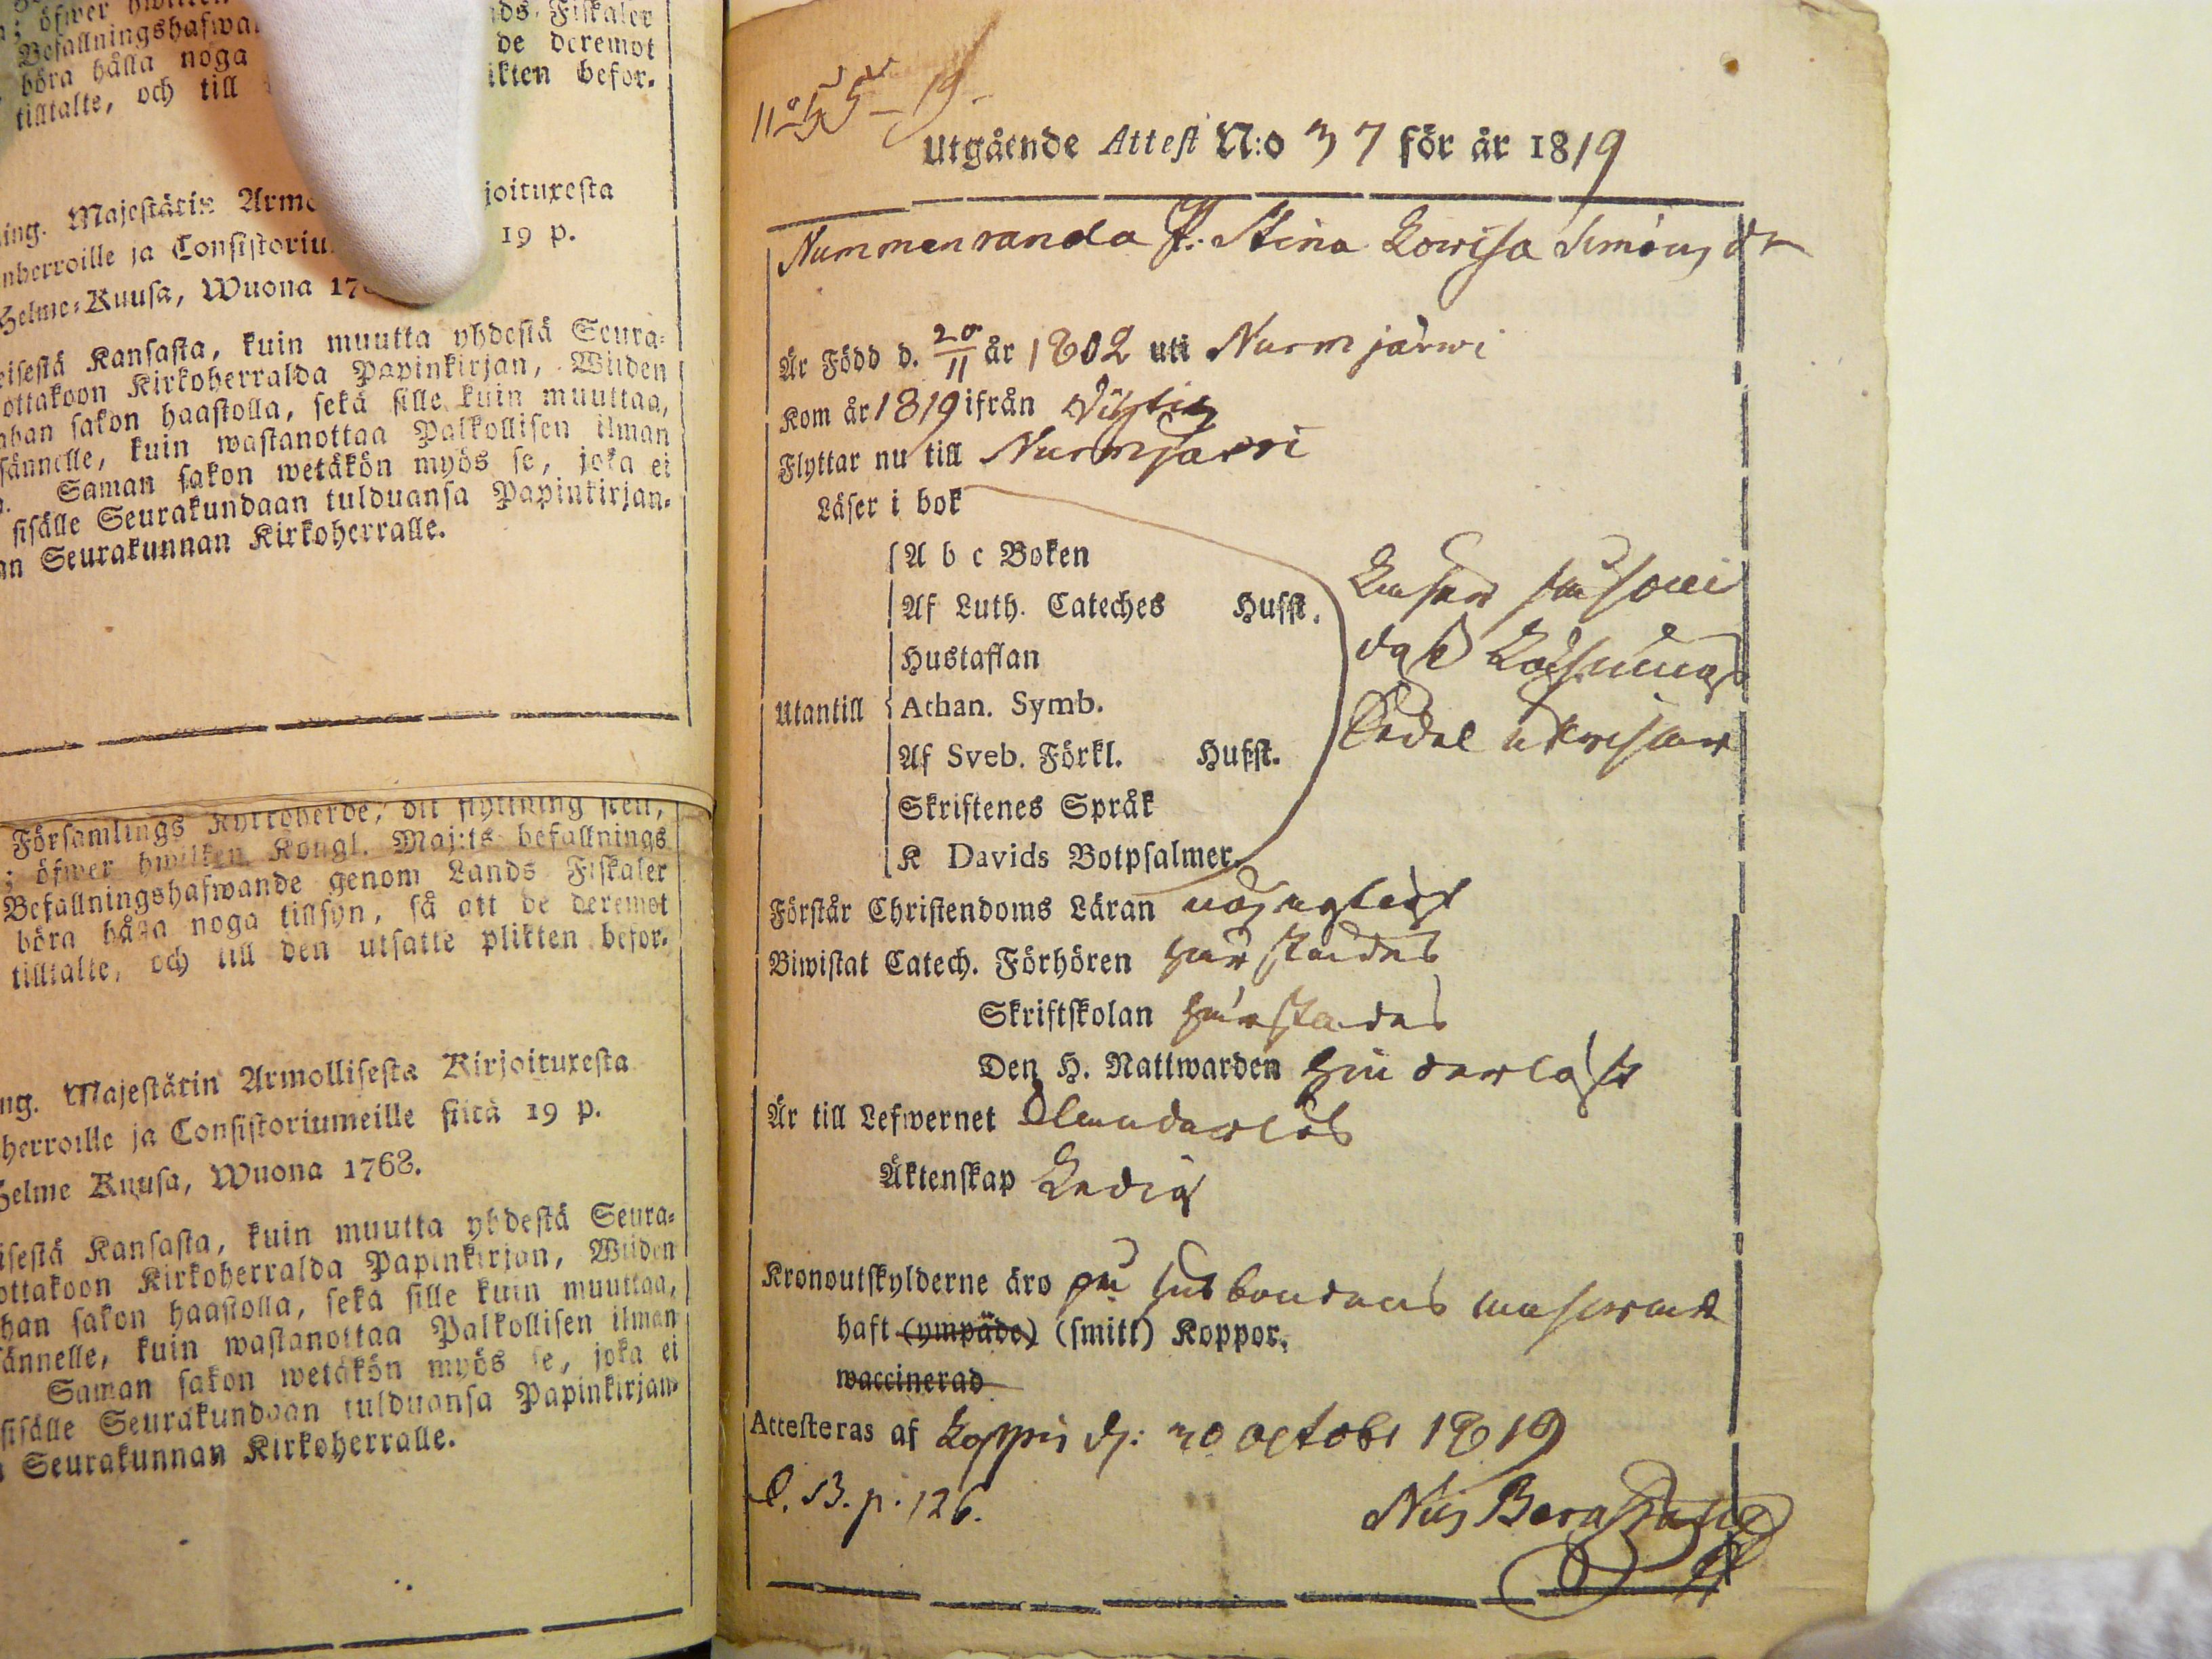 ; öfwer hwilken
Befallningshafwa
böra hålla noga
tilltalte, och till
ds Fiskaler
de deremot
ikten befor.
ing. Majestätin Armo
joituxesta
nherroille ja Consistoriu
19 p.
Helme-Kuusa, Wuona 17
eisestä Kansasta, kuin muutta yhdestä Seura-
ottakoon Kirkoherralda Papinkirjan, Wiiden
ahan sakon haastolla, sekä sille kuin muuttaa,
sännelle, kuin wastanottaa Palkollisen ilman
Saman sakon wetäkön myös se, joka ei
sisälle Seurakundaan tulduansa Papinkirjan-
an Seurakunnan Kirkoherralle.
Församlings Kyrkoherde, dit flyttning sken,
; öfwer hwilken Kongl. Maj:ts befallnings
Befallningshafwande genom Lands Fiskaler
böra hålla noga tillsyn, så att de deremot
tilltalte, och till den utsatte plikten befor-
ng. Majestätin Armollisesta Kirjoituxesta
herroille ja Consistoriumeille siitä 19 p.
Helme Kuusa, Wuona 1768.
isestä Kansasta, kuin muutta yhdestä Seura-
ottakoon Kirkoherralda Papinkirjan, Wiiden
han sakon haastolla, sekä sille kuin muuttaa,
ännelle, kuin wastanottaa Palkollisen ilman
Saman sakon wetäkön myös se, joka ei
sisälle Seurakundaan tulduansa Papinkirjan-
Seurakunnan Kirkoherralle.
No 55 - 19.
Utgående Attest N:o 37 för år 1819
Nummenranda P. Stina Lowisa Simons dr
Är Född d. 20/11 år 1802 uti Nurmjärwi
Kom år 1819 ifrån Wihtis
Flyttar nu till Nurmjärwi
Läser i bok
A b c Boken
Af Luth. Cateches Hufst.
Hustaflan
Utantill Athan. Symb.
Af Sveb. Förkl. Hufst.
Skriftenes Språk
K Davids Botpsalmer.
Läser såsom
dess Läsnings
Sedel utwisar
Förstår Christendoms Läran nöjagtigt
Biwistat Catech. Förhören härstädes
Skriftskolan härstädes
Den H. Nattwarden hinderlöst
Är till Lefwernet Klanderlös
Äktenskap Ledig
Kronoutskylderne äro på husbondens answar
haft (ympade) (smitt) Koppor.
waccinerad
Attesteras af Loppis d: 20 Octobr 1819
l. B. p. 126.
Nils